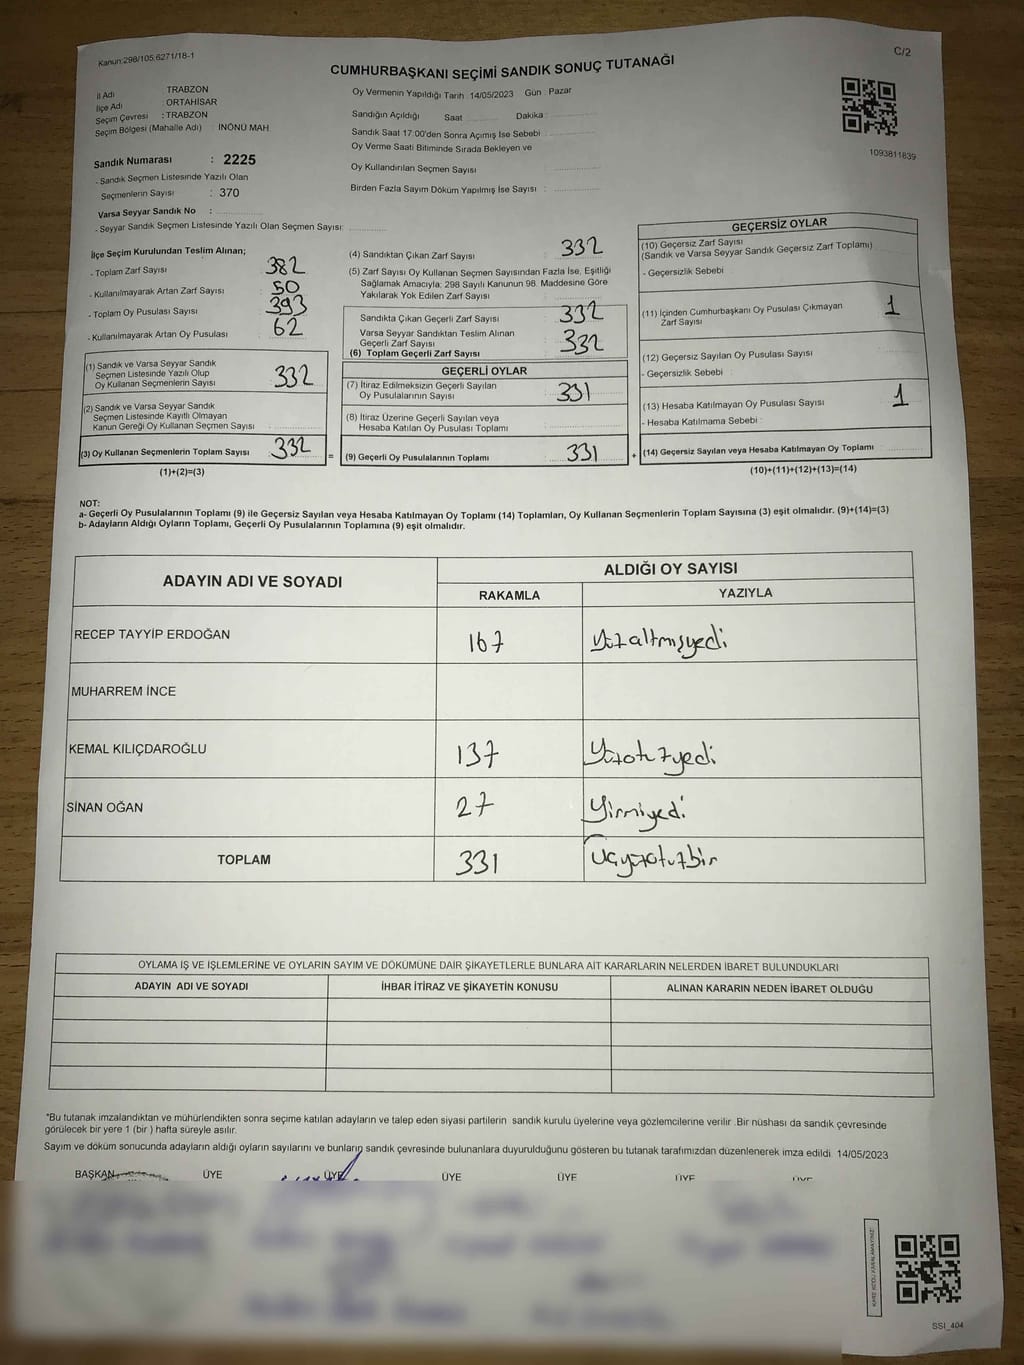 Kanun:298/105:6271/18-1
C/2
CUMHURBAŞKANI SEÇİMİ SANDIK SONUÇ TUTANAĞI
İl Adı TRABZON
İlçe Adı : ORTAHİSAR
Seçim Çevresi : TRABZON
Seçim Bölgesi (Mahalle Adı) : İNÖNÜ MAH
Sandık Numarası : 2225
- Sandık Seçmen Listesinde Yazılı Olan
Seçmenlerin Sayısı : 370
Varsa Seyyar Sandık No :
- Seyyar Sandık Seçmen Listesinde Yazılı Olan Seçmen Sayısı:
Oy Vermenin Yapıldığı Tarih 14/05/2023 Gün : Pazar
Sandığın Açıldığı Saat Dakika :
Sandık Saat 17:00'den Sonra Açımış İse Sebebi
Oy Verme Saati Bitiminde Sırada Bekleyen ve
Oy Kullandırılan Seçmen Sayısı
Birden Fazla Sayım Döküm Yapılmış İse Sayısı :
1093811839
İlçe Seçim Kurulundan Teslim Alınan;
- Toplam Zarf Sayısı 382
- Kullanılmayarak Artan Zarf Sayısı 50
- Toplam Oy Pusulası Sayısı 393
- Kullanılmayarak Artan Oy Pusulası 62
(1) Sandık ve Varsa Seyyar Sandık
Seçmen Listesinde Yazılı Olup
Oy Kullanan Seçmenlerin Sayısı 332
(2) Sandık ve Varsa Seyyar Sandık
Seçmen Listesinde Kayıtlı Olmayan
Kanun Gereği Oy Kullanan Seçmen Sayısı
(3) Oy Kullanan Seçmenlerin Toplam Sayısı 332 =
(1)+(2)=(3)
(4) Sandıktan Çıkan Zarf Sayısı 332
(5) Zarf Sayısı Oy Kullanan Seçmen Sayısından Fazla İse, Eşitliği
Sağlamak Amacıyla; 298 Sayılı Kanunun 98. Maddesine Göre
Yakılarak Yok Edilen Zarf Sayısı
Sandıkta Çıkan Geçerli Zarf Sayısı 332
Varsa Seyyar Sandıktan Teslim Alınan
Geçerli Zarf Sayısı
(6) Toplam Geçerli Zarf Sayısı 332
GEÇERLİ OYLAR
(7) İtiraz Edilmeksizin Geçerli Sayılan
Oy Pusulalarının Sayısı 331
(8) İtiraz Üzerine Geçerli Sayılan veya
Hesaba Katılan Oy Pusulası Toplamı
(9) Geçerli Oy Pusulalarının Toplamı 331 +
GEÇERSİZ OYLAR
(10) Geçersiz Zarf Sayısı
(Sandık ve Varsa Seyyar Sandık Geçersiz Zarf Toplamı)
- Geçersizlik Sebebi
(11) İçinden Cumhurbaşkanı Oy Pusulası Çıkmayan
Zarf Sayısı 1
(12) Geçersiz Sayılan Oy Pusulası Sayısı
- Geçersizlik Sebebi
(13) Hesaba Katılmayan Oy Pusulası Sayısı 1
- Hesaba Katılmama Sebebi
(14) Geçersiz Sayılan veya Hesaba Katılmayan Oy Toplamı
(10)+(11)+(12)+(13)=(14)
NOT:
a- Geçerli Oy Pusulalarının Toplamı (9) ile Geçersiz Sayılan veya Hesaba Katılmayan Oy Toplamı (14) Toplamları, Oy Kullanan Seçmenlerin Toplam Sayısına (3) eşit olmalıdır. (9)+(14)=(3)
b- Adayların Aldığı Oyların Toplamı, Geçerli Oy Pusulalarının Toplamına (9) eşit olmalıdır.
ADAYIN ADI VE SOYADI
ALDIĞI OY SAYISI
RAKAMLA YAZIYLA
RECEP TAYYİP ERDOĞAN 167 Yüzaltmışyedi
MUHARREM İNCE
KEMAL KILIÇDAROĞLU 137 Yüzotuzyedi
SİNAN OĞAN 27 Yirmiyedi
TOPLAM 331 Üçyüzotuzbir
OYLAMA İŞ VE İŞLEMLERİNE VE OYLARIN SAYIM VE DÖKÜMÜNE DAİR ŞİKAYETLERLE BUNLARA AİT KARARLARIN NELERDEN İBARET BULUNDUKLARI
ADAYIN ADI VE SOYADI İHBAR İTİRAZ VE ŞİKAYETİN KONUSU ALINAN KARARIN NEDEN İBARET OLDUĞU
*Bu tutanak imzalandıktan ve mühürlendikten sonra seçime katılan adayların ve talep eden siyasi partilerin sandık kurulu üyelerine veya gözlemcilerine verilir .Bir nüshası da sandık çevresinde
görülecek bir yere 1 (bir ) hafta süreyle asılır.
Sayım ve döküm sonucunda adayların aldığı oyların sayılarını ve bunların sandık çevresinde bulunanlara duyurulduğunu gösteren bu tutanak tarafımızdan düzenlenerek imza edildi. 14/05/2023
BAŞKAN ÜYE ÜYE ÜYE ÜYE ÜYE ÜYE
SSI_404